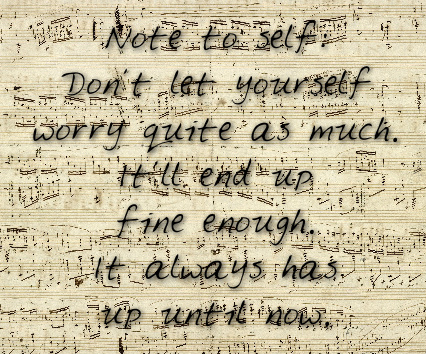 Note to self:
Don't let yourself
worry quite as much.
It'll end up
fine enough.
It always has
up until now.